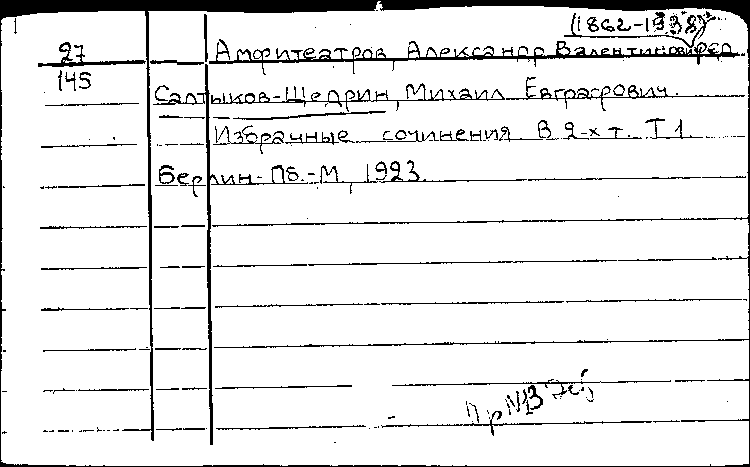 (1862-1938)
27 Амфитеатров, Александр Валентинович, ред.
145
Салтыков-Щедрин, Михаил Евграфович.
Избранные сочинения. В 2-х т. Т 1.
Берлин-Пб.-М, 1923.
Пр N13